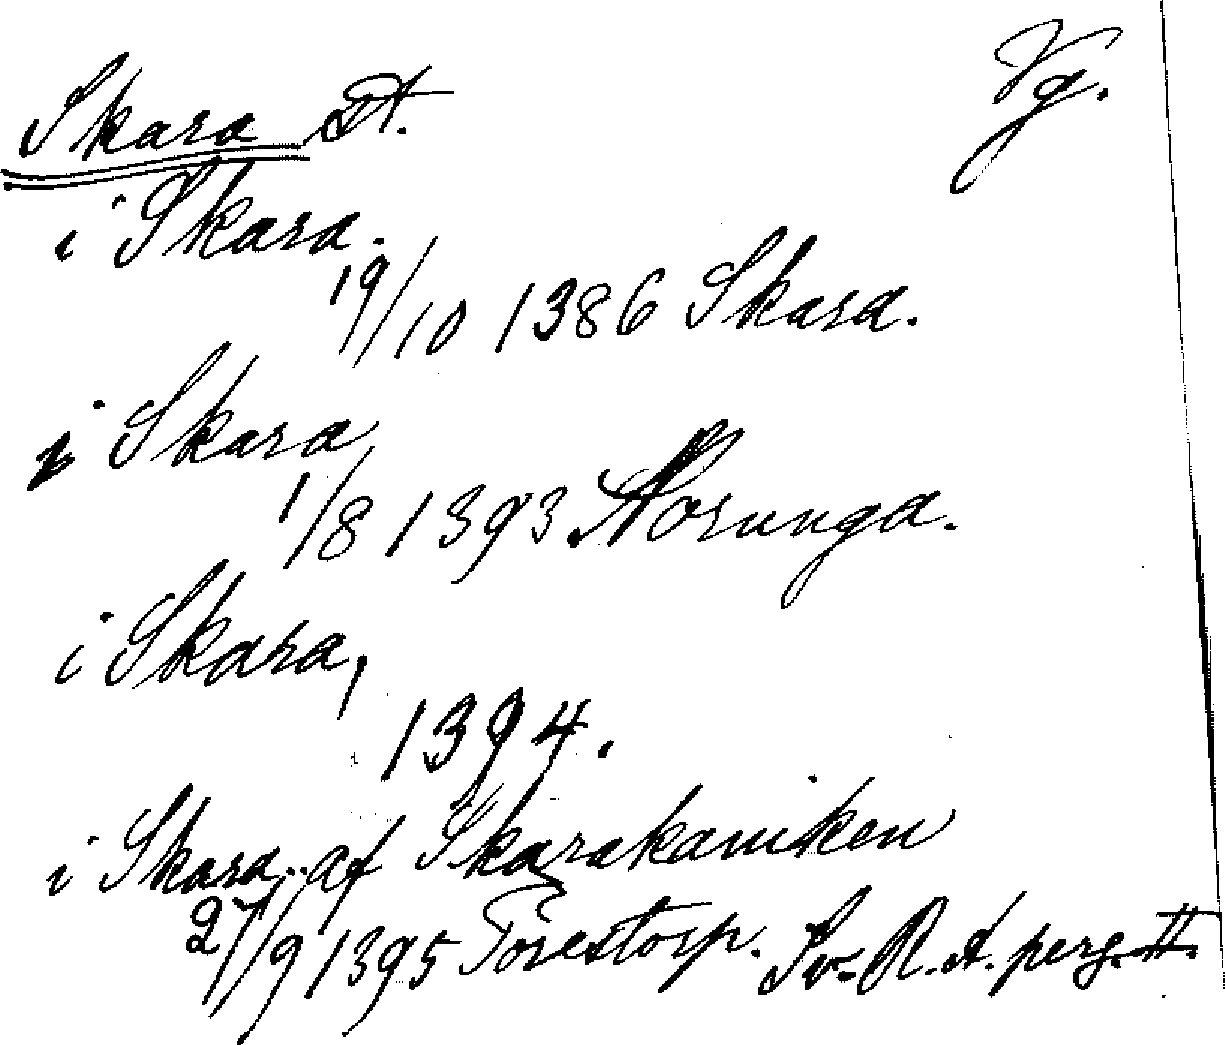 Skara St. Vg.
i Skara.
19/10 1386 Skara.
i Skara
1/8 1393 Norunga.
i Skara,
1394.
i Skara.. af Skarakaniken
27/9 1395 Torestorp. Sv. R. A. perg. II.